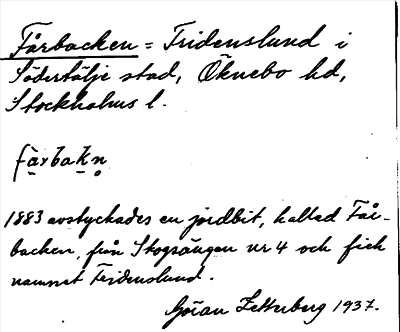 Fårbacken = Fridenslund i
Södertälje stad, Öknebo hd,
Stockholms l.
fårbakn
1883 avstyckades en jordbit, kallad Får-
backen, från Skogsängen nr 4 och fick
namnet Fridenslund.
Göran Zetterberg 1937.